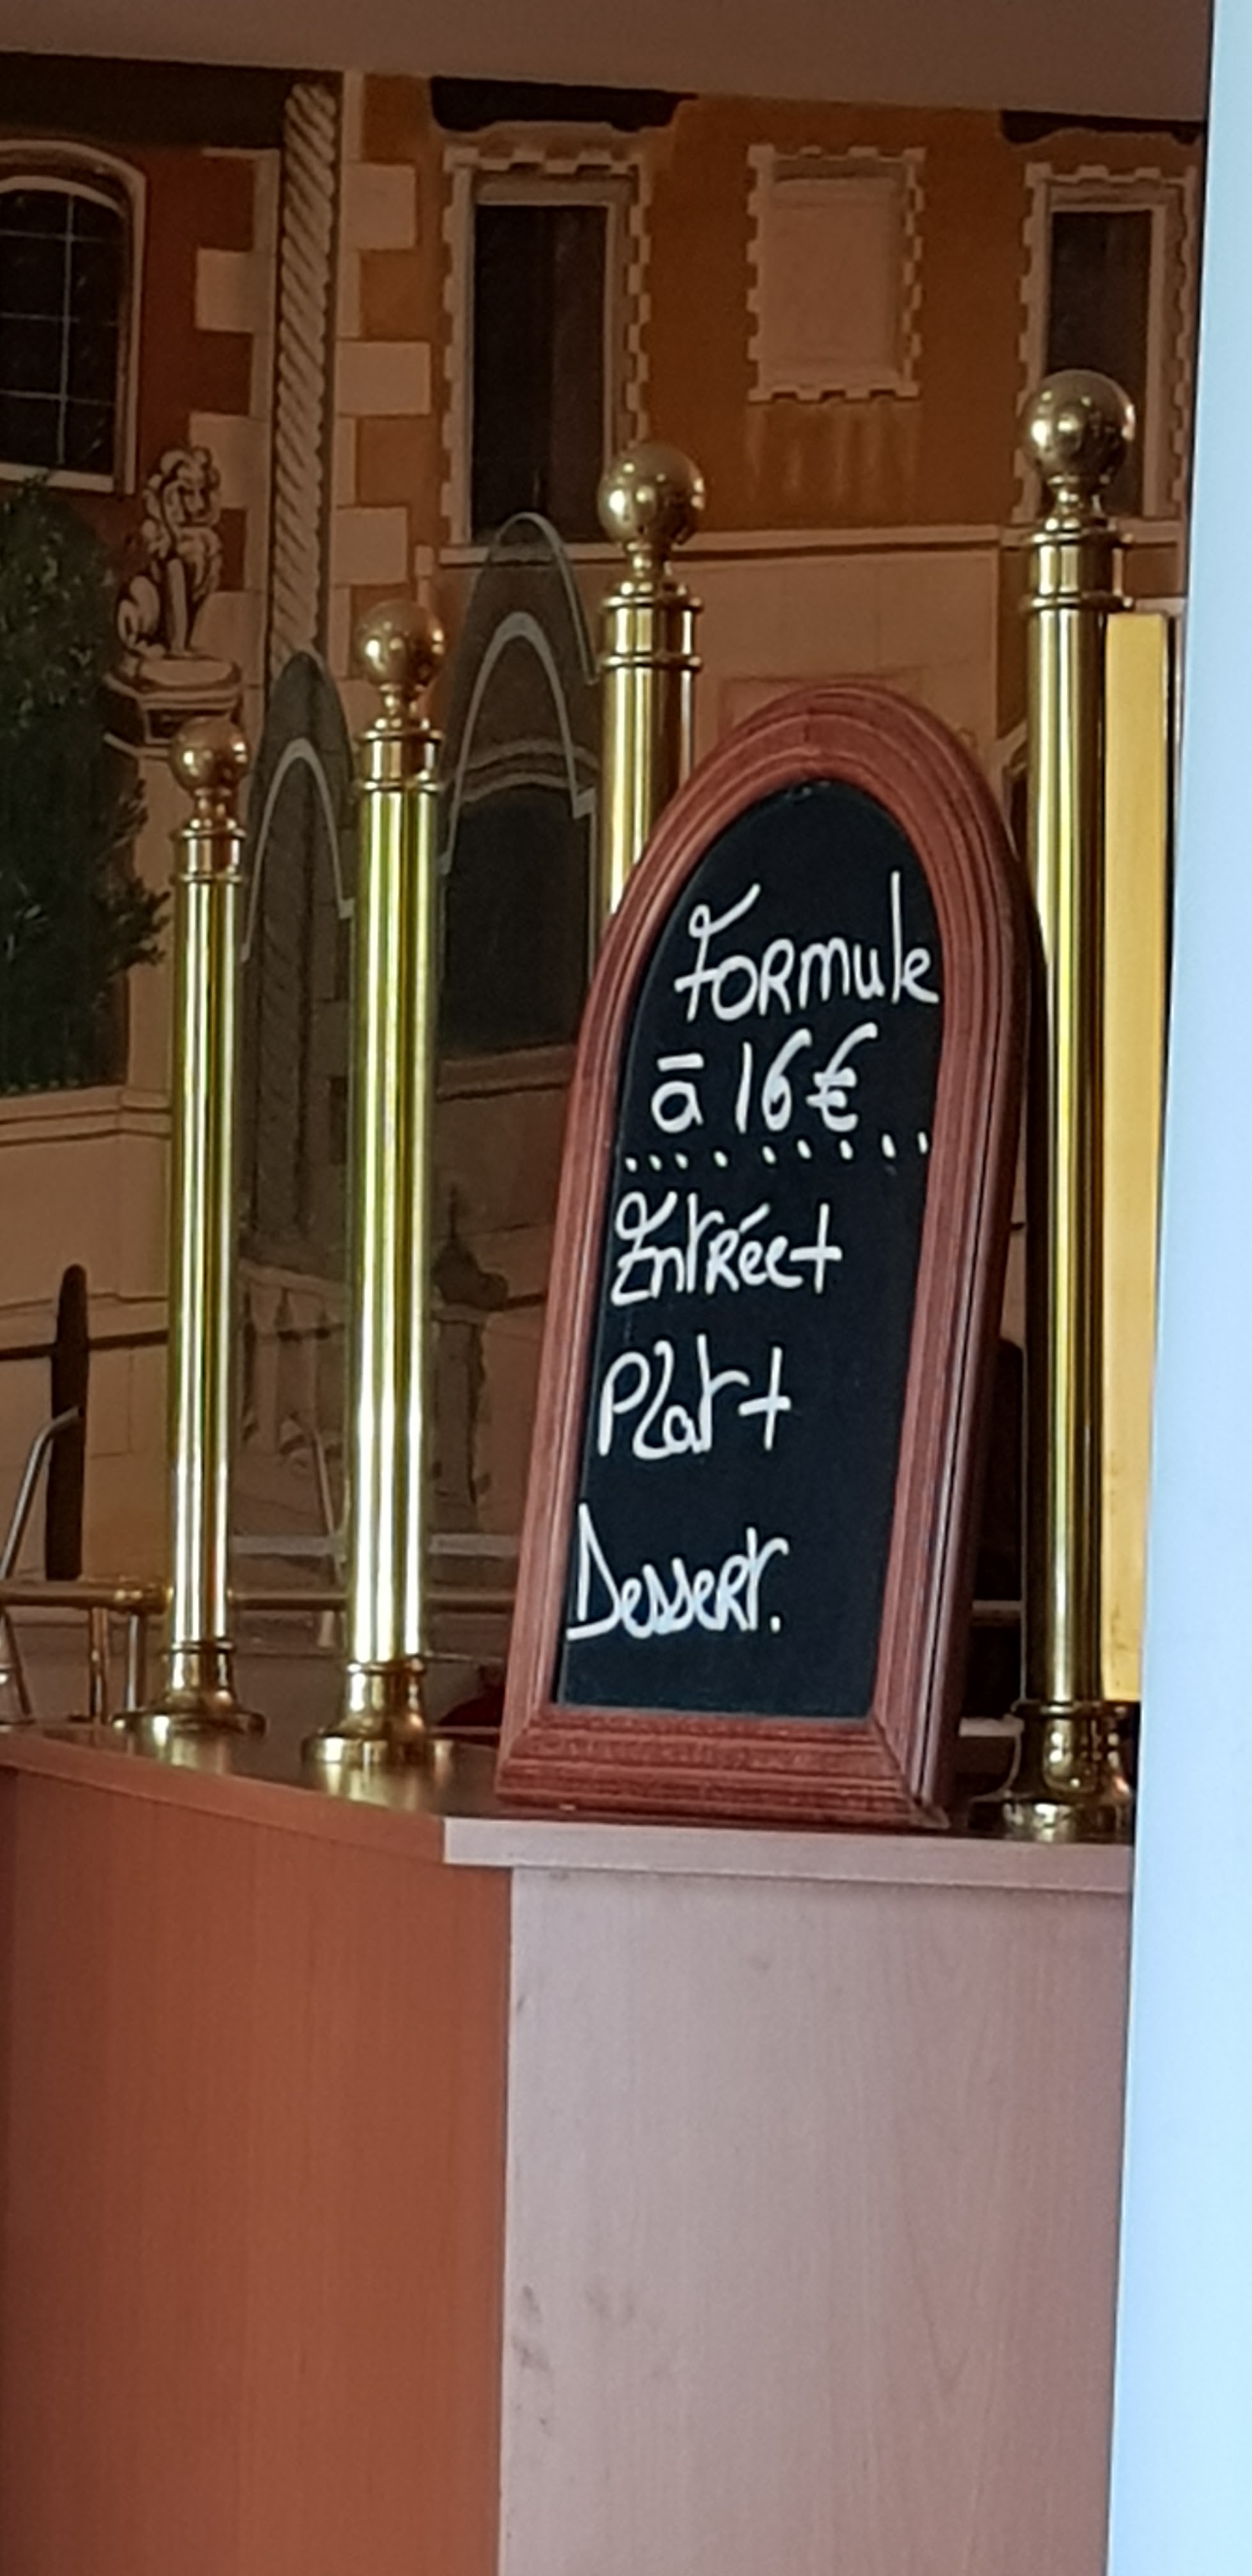 Formule
à 16€
.........
Entrée+
Plat+
Dessert.